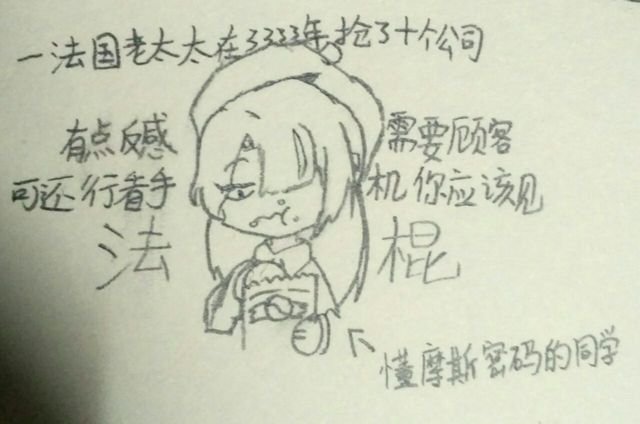 一法国老太太在3333年抢了十个公司
有点反感
可还行者手
法
需要顾客
机你应该见
棍
懂摩斯密码的同学